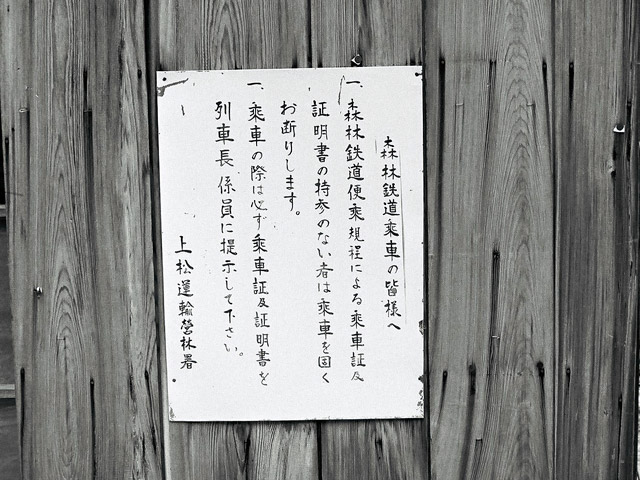 森林鉄道乗車の皆様へ
一、森林鉄道便乗規程による乗車証及
証明書の持参のない者は乗車を固く
お断りします。
一、乗車の際は必ず乗車証及証明書を
列車長係員に提示して下さい。
上松運輸営林署